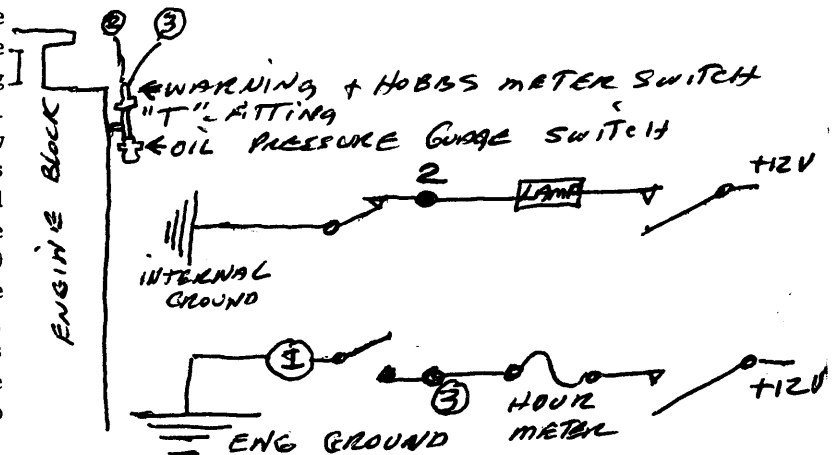 ② ③
WARNING + HOBBS METER SWITCH
"T"-FITTING
OIL PRESSURE GUAGE SWITCH
ENGINE BLOCK
2
LAMP
+12V
INTERNAL
GROUND
1
3
HOUR
METER
+12V
ENG GROUND